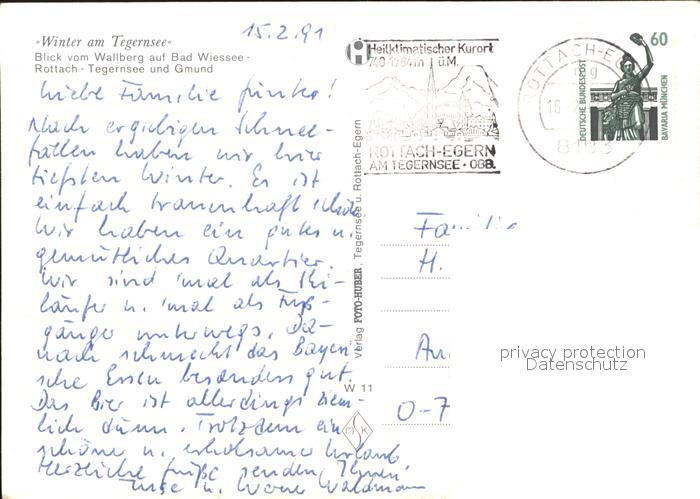 15.2.91
»Winter am Tegernsee«
Blick vom Wallberg auf Bad Wiessee -
Rottach - Tegernsee und Gmund
Liebe Familie
Nach ergiebigen Schnee-
fällen haben wir hier
tiefsten Winter. Es ist
einfach traumhaft schön
Wir haben ein gutes u.
gemütliches Quartier.
Wir sind 'mal als Ski-
läufer u. 'mal als Fuß-
gänger unterwegs. Da-
nach schmeckt das Bayeri-
sche Essen besonders gut.
Das Bier ist allerdings ziem-
lich dünn. Trotzdem ein
schöner u. erholsamer Urlaub
Herzliche Grüße senden Ihnen
u. Waldmann
Verlag FOTO-HUBER, Tegernsee u. Rottach-Egern
W 11
Heilklimatischer Kurort
740-1764 m ü.M.
ROTTACH-EGERN
AM TEGERNSEE · OBB.
ROTTACH-EG
8183
60
DEUTSCHE BUNDESPOST
BAVARIA MÜNCHEN
Familie
H.
O-7
privacy protection
Datenschutz